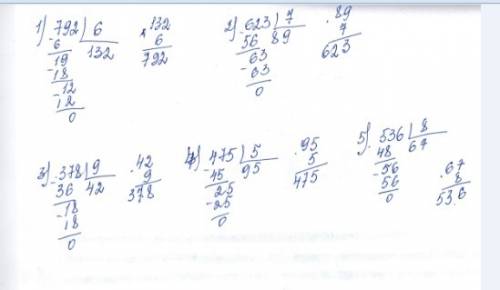 1) 792 | 6    × 132
- 6    132    6
19    792
- 18
12
- 12
0
2) - 623 | 7    × 89
56    89    7
63    623
- 63
0
3) - 378 | 9    × 42
36    42    9
- 18    378
18
0
4) - 475 | 5    × 95
45    95    5
25    475
- 25
0
5) 536 | 8
48    67
- 56    × 67
56    8
0    536